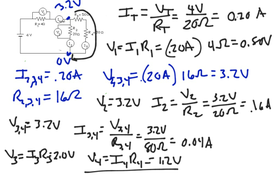 3.2V
0V
I_T = V_T/R_T = 4V/20Ω = 0.20 A
V_1 = I_1R_1 = (.20A) 4Ω = 0.80V
I_{2,3,4} = .20A
V_{2,3,4} = (.20A) 16Ω = 3.2V
R_{2,3,4} = 16Ω
V_2 = 3.2V
I_2 = V_2/R_2 = 3.2V/20Ω = .16A
V_{3,4} = 3.2V
I_{3,4} = V_{3,4}/R_{3,4} = 3.2V/80Ω = 0.04A
V_3 = I_3R_3 = 2.0V
V_4 = I_4R_4 = 1.2V